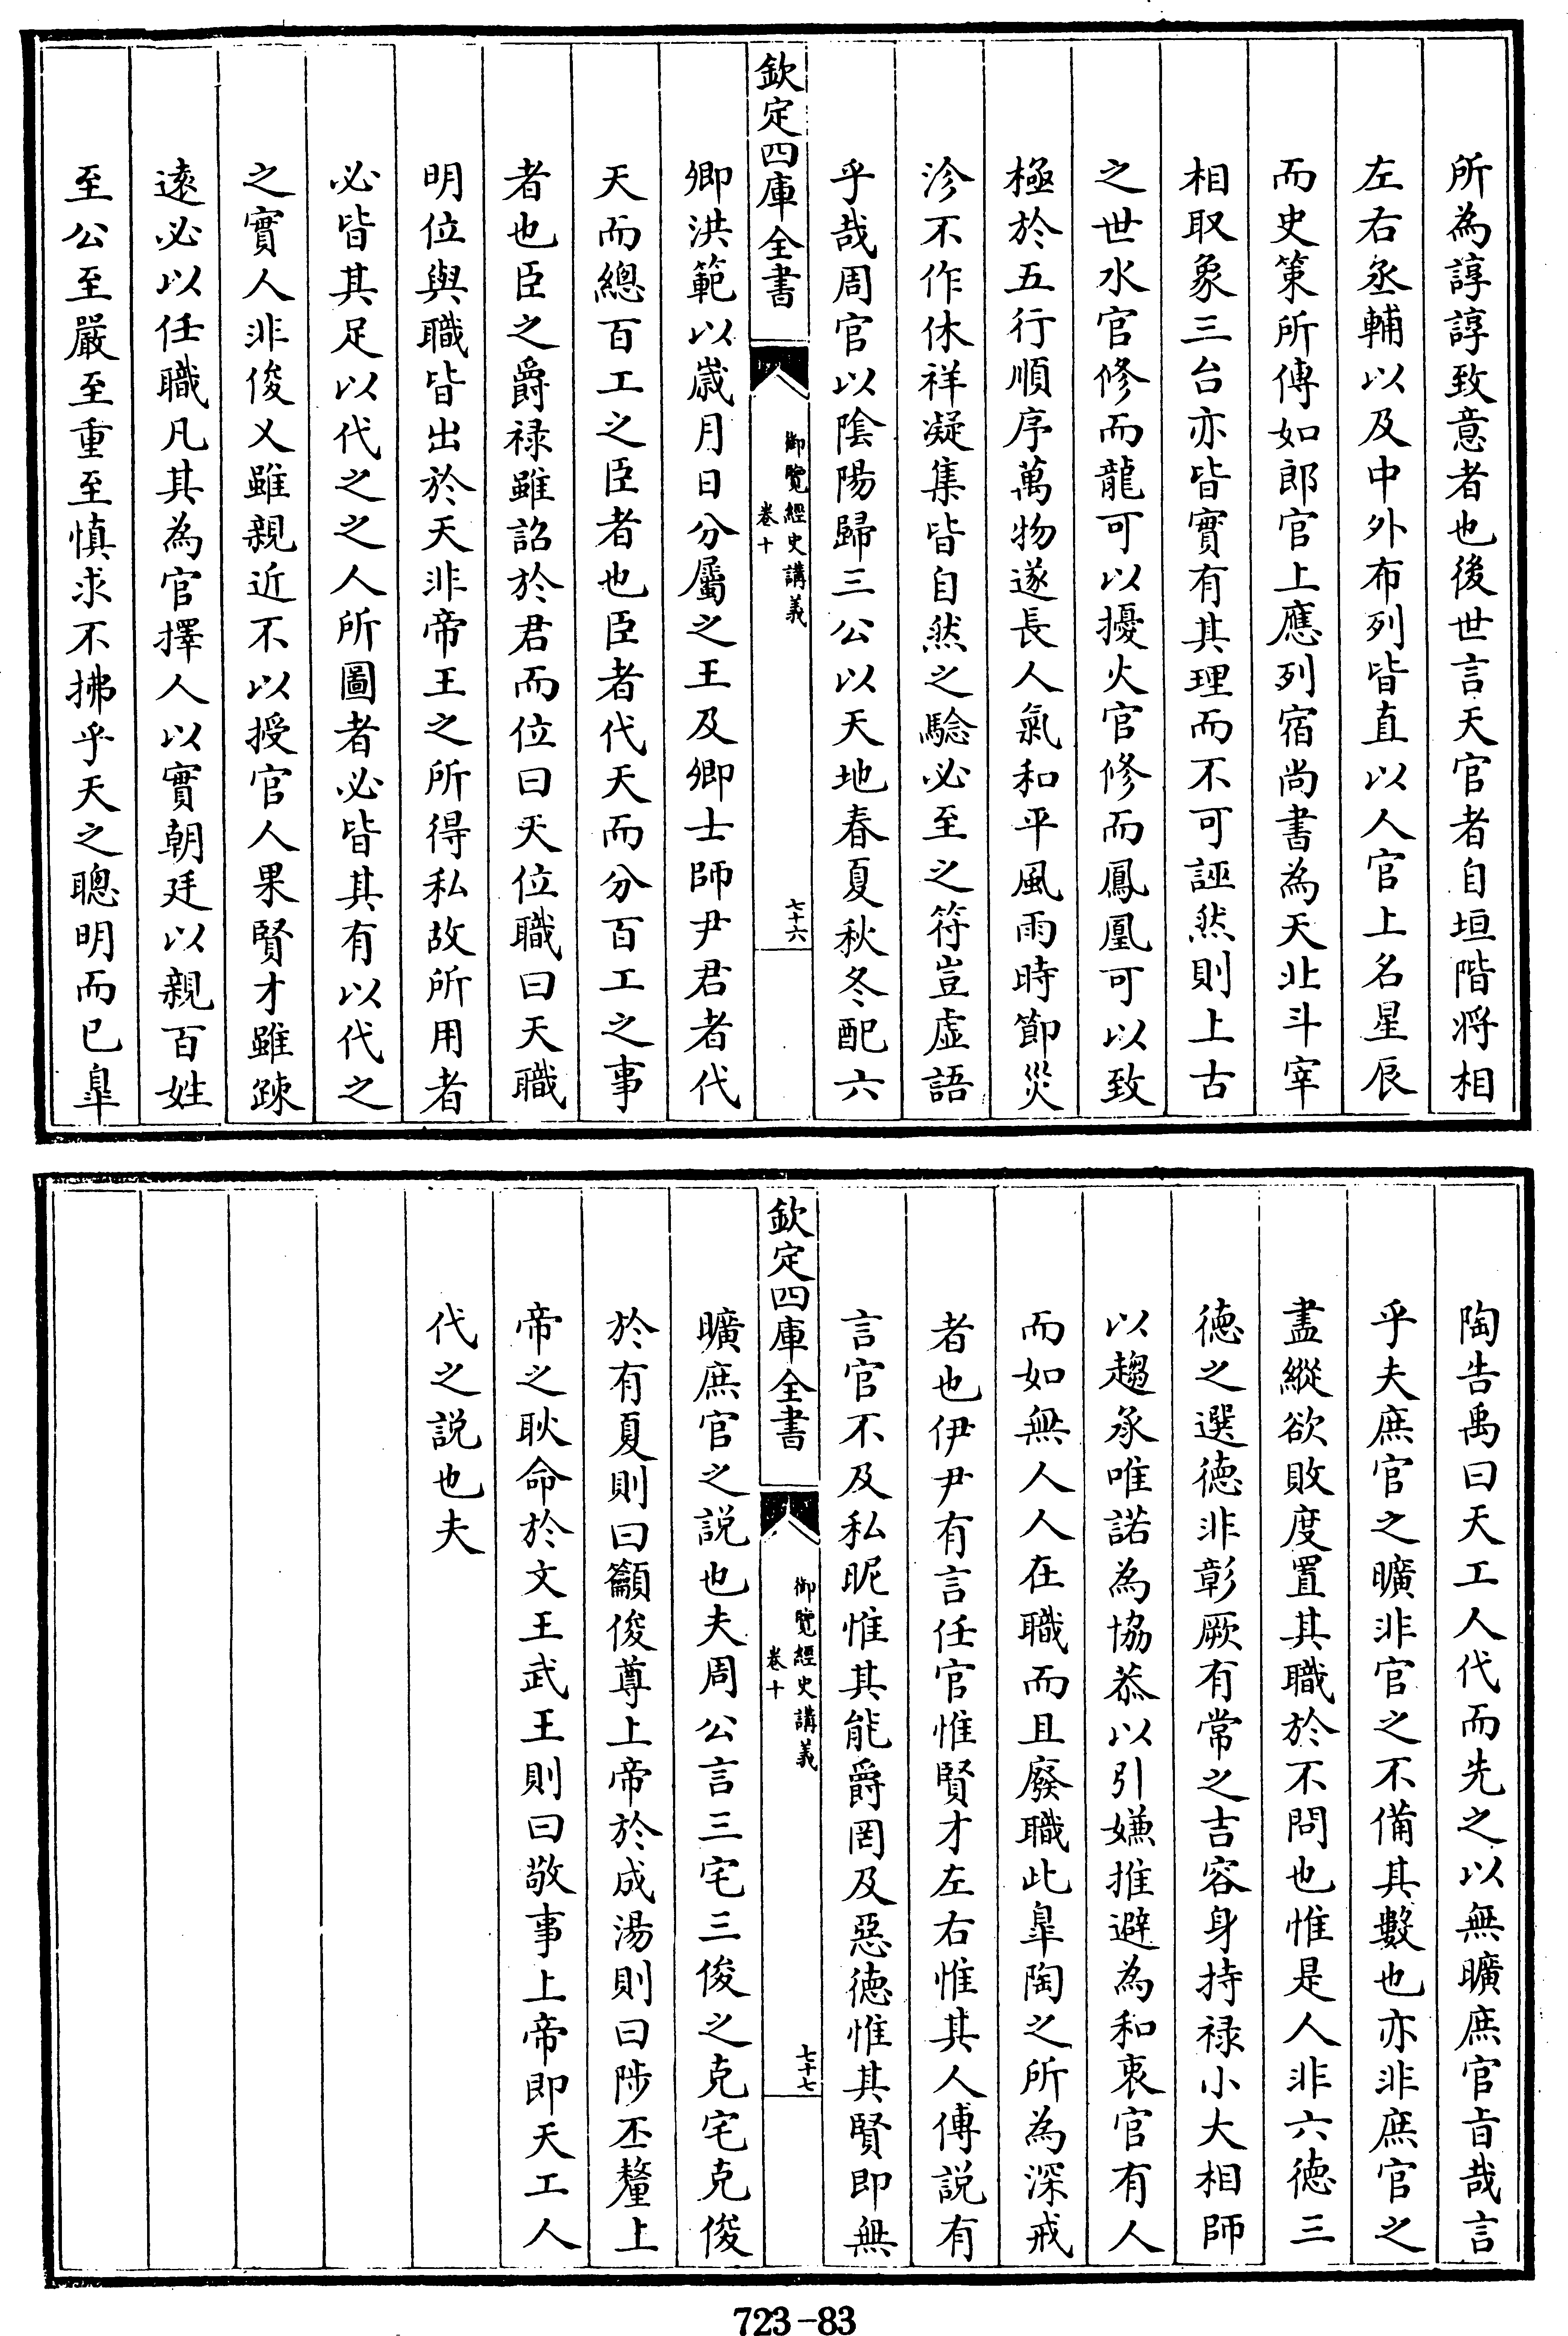 所為諄諄致意者也後世言天官者自垣階將相
左右丞輔以及中外布列皆直以人官上名星辰
而史策所傳如郎官上應列宿尚書為天北斗宰
相取象三台亦皆實有其理而不可誣然則上古
之世水官修而龍可以擾火官修而鳳凰可以致
極於五行順序萬物遂長人氣和平風雨時節災
沴不作休祥凝集皆自然之驗必至之符豈虛語
乎哉周官以陰陽歸三公以天地春夏秋冬配六
欽定四庫全書
御覽經史講義
卷十
七十六
卿洪範以嵗月日分屬之王及卿士師尹君者代
天而總百工之臣者也臣者代天而分百工之事
者也臣之爵禄雖詔於君而位曰天位職曰天職
明位與職皆出於天非帝王之所得私故所用者
必皆其足以代之之人所圖者必皆其有以代之
之實人非俊乂雖親近不以授官人果賢才雖疎
逺必以任職凡其為官擇人以實朝廷以親百姓
至公至嚴至重至慎求不拂乎天之聰明而已臯
陶告禹曰天工人代而先之以無曠庶官旨哉言
乎夫庶官之曠非官之不備其數也亦非庶官之
盡縱欲敗度置其職於不問也惟是人非六德三
德之選德非彰厥有常之吉容身持禄小大相師
以趨承唯諾為協恭以引嫌推避為和衷官有人
而如無人人在職而且廢職此臯陶之所為深戒
者也伊尹有言任官惟賢才左右惟其人傅説有
言官不及私昵惟其能爵罔及惡德惟其賢即無
欽定四庫全書
御覽經史講義
卷十
七十七
曠庶官之説也夫周公言三宅三俊之克宅克俊
於有夏則曰籲俊尊上帝於成湯則曰陟丕釐上
帝之耿命於文王武王則曰敬事上帝即天工人
代之説也夫
723-83